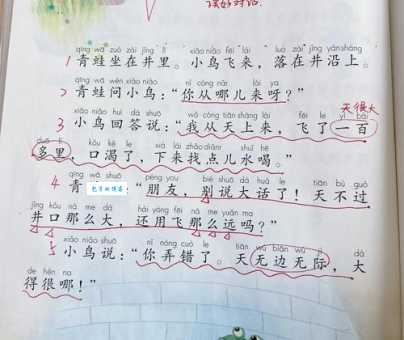 读好对话.
qīng wā zuò zài jǐng lǐ xiǎo niǎo fēi lái luò zài jǐng yán shàng
1 青蛙坐在井里。小鸟飞来，落在井沿上。
qīng wā wèn xiǎo niǎo nǐ cóng nǎr lái ya
2 青蛙问小鸟：“你从哪儿来呀？”
天很大
xiǎo niǎo huí dá shuō wǒ cóng tiān shàng lái fēi le yì bǎi
3 小鸟回答说：“我从天上来，飞了一百
duō lǐ kǒu kě le xià lái zhǎo diǎnr shuǐ hē
多里，口渴了，下来找点儿水喝。”
qīng wā shuō péng you bié shuō dà huà le tiān bú guò
4 青 “朋友，别说大话了！天不过
jǐng kǒu nà me dà hái yòng fēi nà me yuǎn ma
井口那么大，还用飞那么远吗？”
xiǎo niǎo shuō nǐ nòng cuò le tiān wú biān wú jì dà
5 小鸟说：“你弄错了。天无边无际，大
de hěn na
得很哪！”